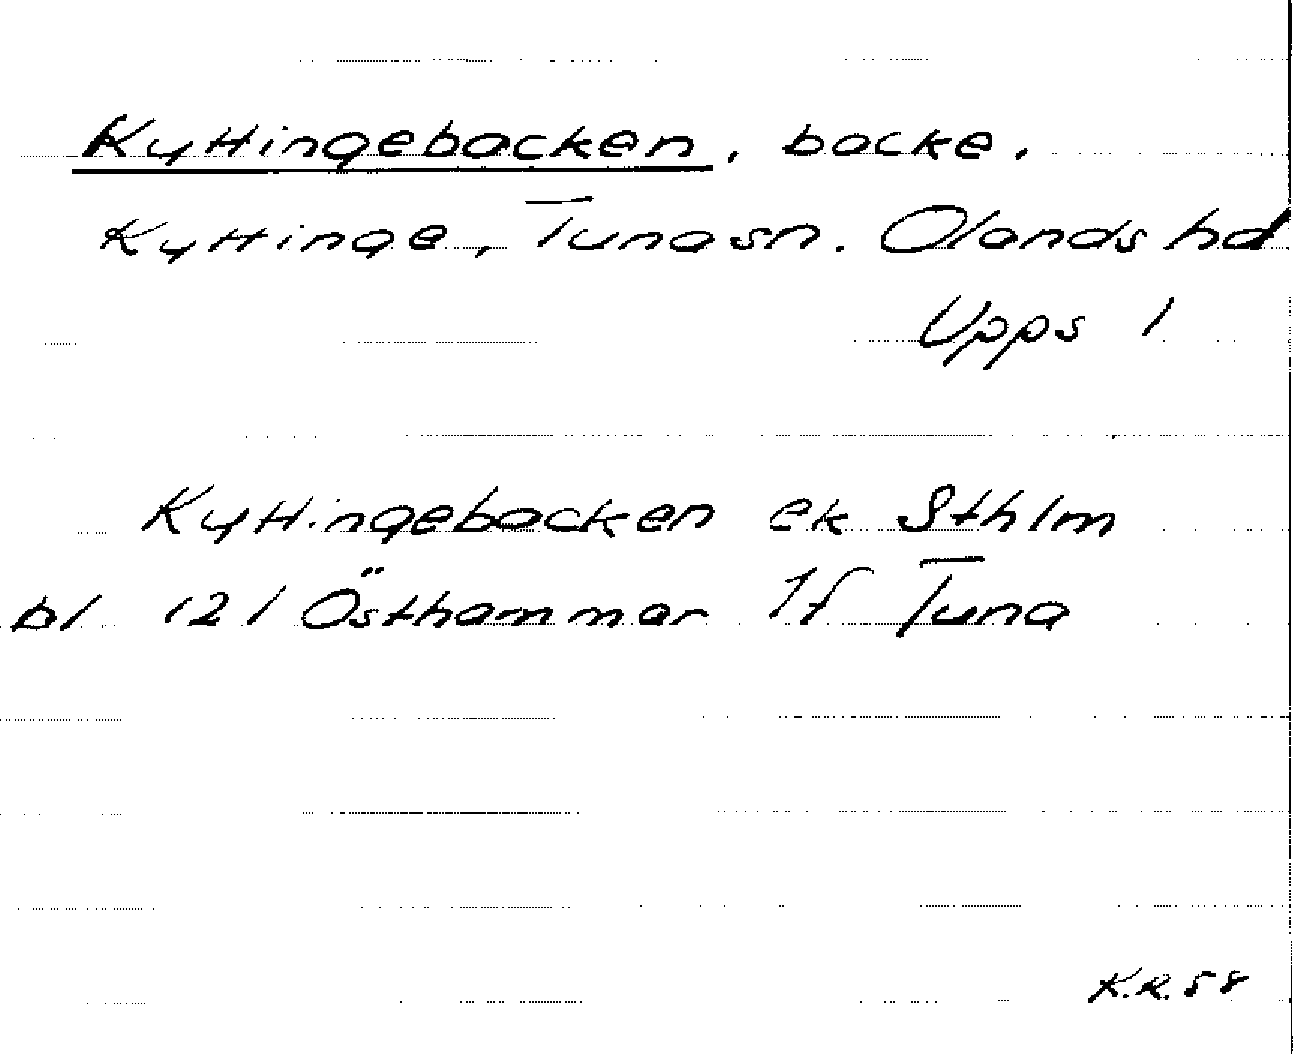 Kyttingebacken, backe,
Kyttinge, Tuna sn. Olands hd
Upps l
Kyttingebacken ek Sthlm
bl 121 Östhammar 1f Tuna
K.R. 58